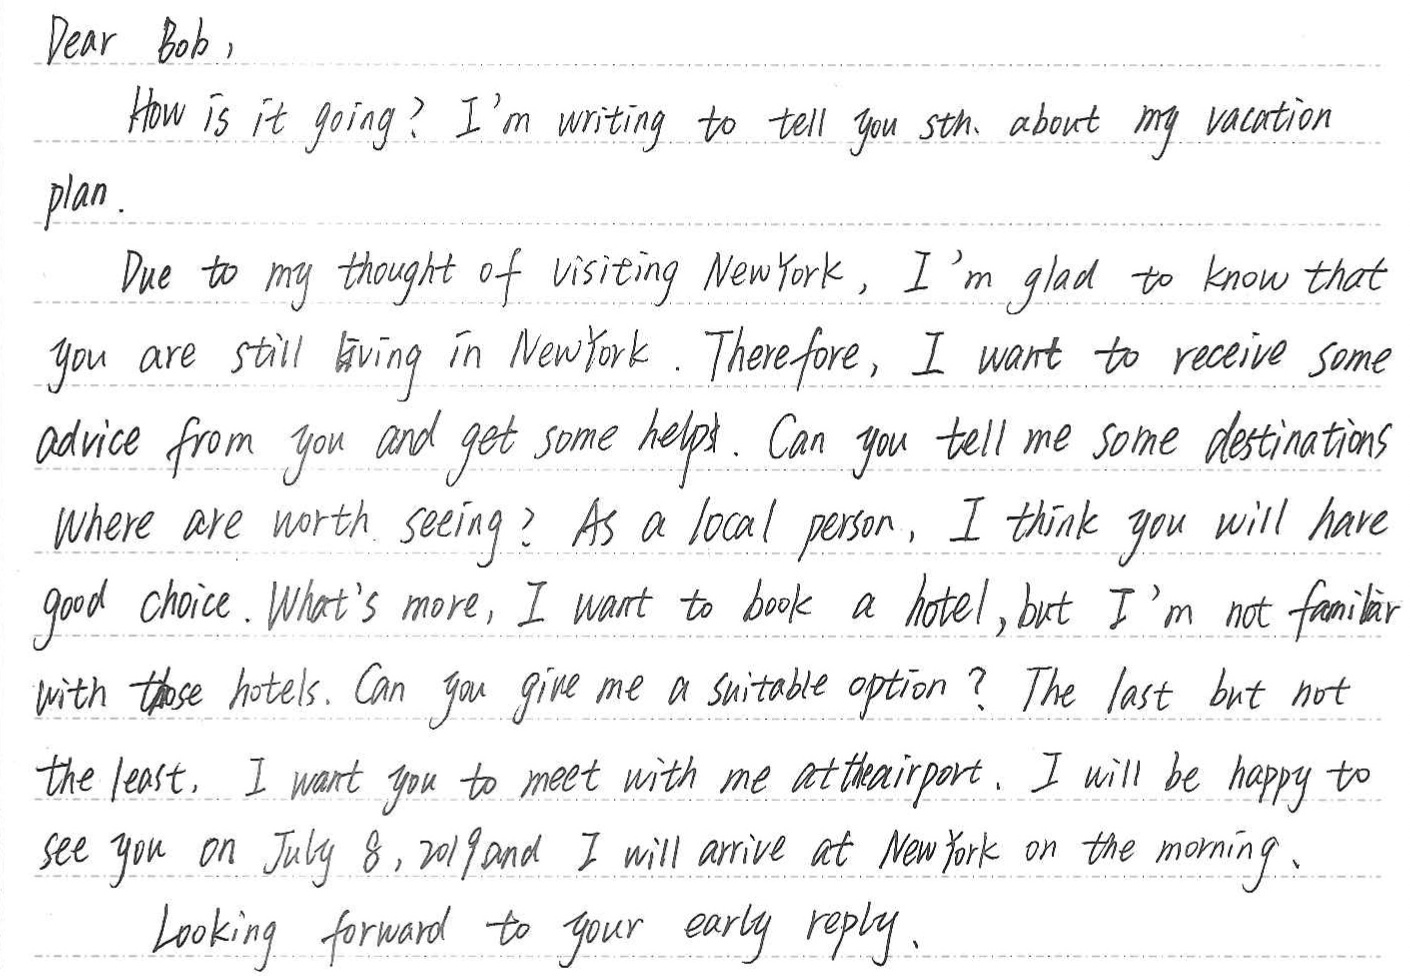 Dear Bob,
How is it going? I'm writing to tell you sth. about my vacation
plan.
Due to my thought of visiting NewYork, I'm glad to know that
you are still living in NewYork. Therefore, I want to receive some
advice from you and get some help. Can you tell me some destinations
where are worth seeing? As a local person, I think you will have
good choice. What's more, I want to book a hotel, but I'm not familiar
with those hotels. Can you give me a suitable option? The last but not
the least, I want you to meet with me at the airport. I will be happy to
see you on July 8, 2019 and I will arrive at NewYork on the morning.
Looking forward to your early reply.